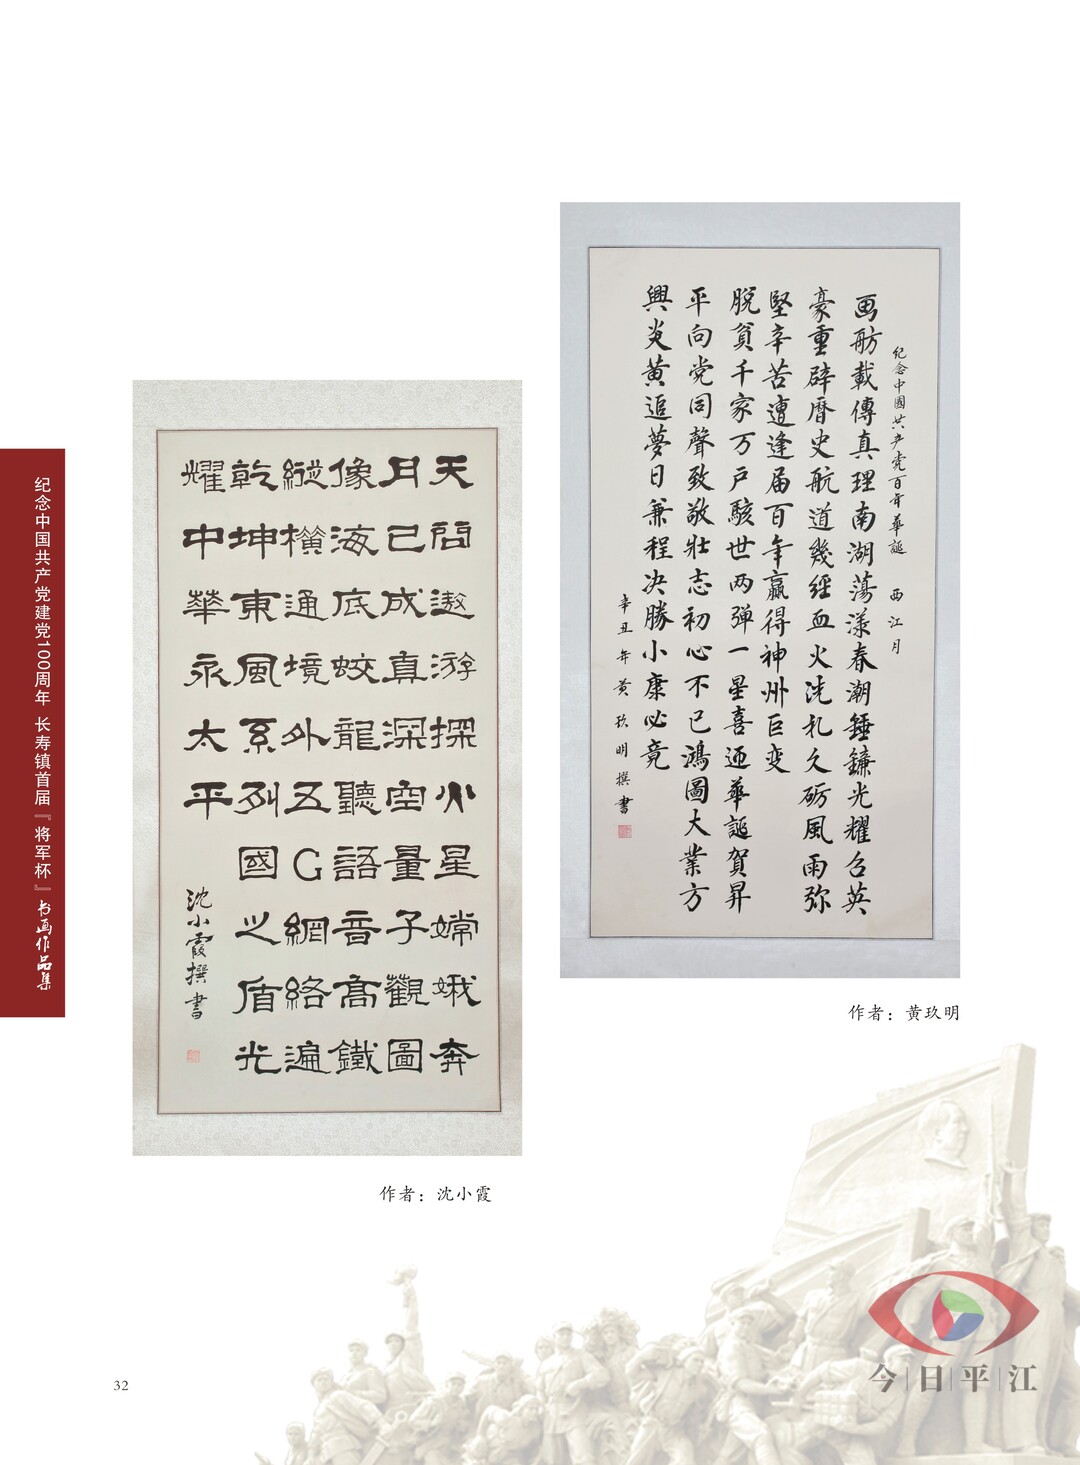 纪念中国共产党建党100周年 长寿镇首届『将军杯』书画作品集
纪念中國共产党百年華誕 西江月
画舫載傳真理南湖蕩漾春潮錘鐮光耀召英
豪重辟曆史航道幾經血火洗礼久砺風雨弥
堅辛苦遭逢届百年赢得神州巨变
脱貧千家万户駭世两弹一星喜迎華誕賀昇
平向党同聲致敬壯志初心不已鴻圖大業方
興炎黄追夢日兼程决勝小康必竟
辛丑年黄玖明撰書
作者：黄玖明
天問遨游探火星嫦娥奔
月已成真深空量子觀圖
像海底蛟龍聽語音高鐵
縱横通境外五G網絡遍
乾坤東風系列國之盾光
耀中華永太平
沈小霞撰書
作者：沈小霞
32
今日平江